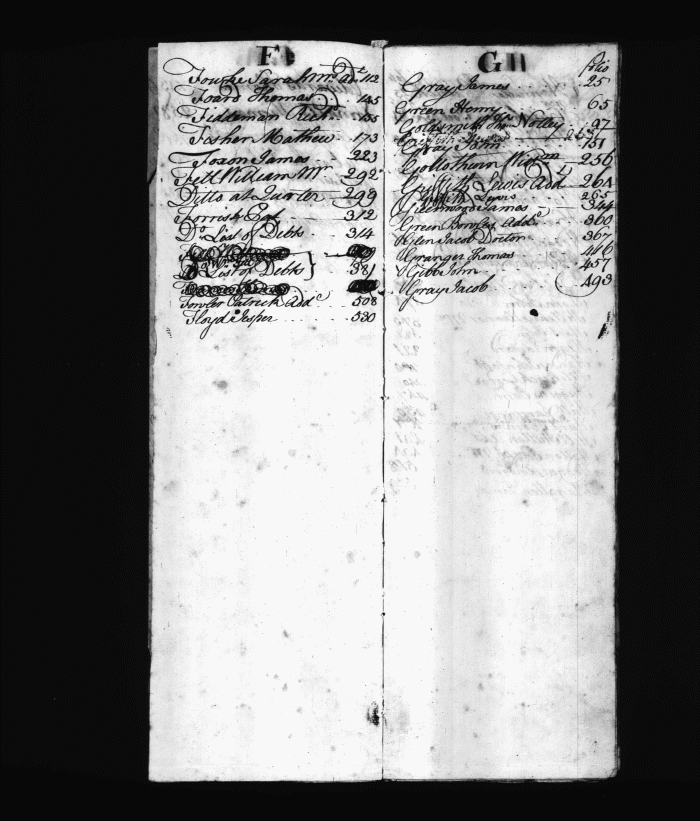 F
Fowke Sarah Mrs. Ad 112
Foard Thomas 145
Fiddeman Rich. 155
Fosher Mathew 173
Foxon James 223
Fell William Mr 292
Ditto at Quarter 299
Forrist 312
Do. List of Debts 314
Do. List of Debts 381
Fowler Patrick Add 508
Floyd Jesper 530
G
folio
Gray James 25
Green Henry 65
Goldsmith Notley 97
Gray John 151
Gollothorn 256
Griffith Lewis Add 264
Lewis 265
Greenwood James 344
Green Bowles Add 360
Glen Jacob Doctor 367
Granger Thomas 446
Gibb John 457
Gray Jacob 493